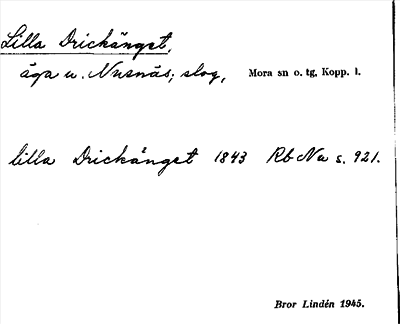 Lilla Drickänget,
äga u. Nusnäs; slog, Mora sn o. tg, Kopp. l.
lilla Drickänget 1843 Rb Na s. 921.
Bror Lindén 1945.